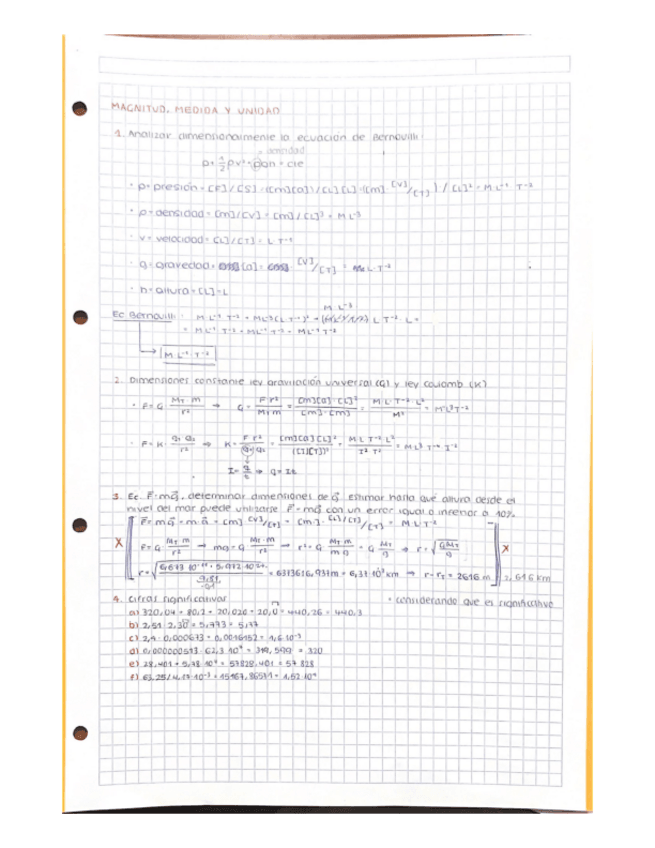 MAGNITUD, MEDIDA Y UNIDAD
1. Analizar dimensionalmente la ecuación de Bernouilli:
= densidad
p + 1/2 ρv² + ρgh = cte
· p = presión = [F]/[S] = ([m][a])/[L][L] = ([m]· [V]/[T]) / [L]² = M L⁻¹ T⁻²
· ρ = densidad = [m]/[V] = [m]/[L]³ = M L⁻³
· v = velocidad = [L]/[T] = L T⁻¹
· g = gravedad = [a] = [V]/[T] = L T⁻²
· h = altura = [L] = L
M L⁻³
Ec Bernouilli: M L⁻¹ T⁻² + M L⁻³ (L T⁻¹)² + L T⁻² · L =
= M L⁻¹ T⁻² + M L⁻¹ T⁻² + M L⁻¹ T⁻²
M L⁻¹ T⁻²
2. Dimensiones constante ley gravitación universal (G) y ley coulomb (K)
· F = G · M_T · m / r² → G = F r² / M_T m = [m][a]·[L]² / [m]·[m] = M L T⁻² L² / M² = M⁻¹ L³ T⁻²
· F = K · Q₁ Q₂ / r² ⇒ K = F r² / Q₁ Q₂ = [m][a][L]² / ([I][T])² = M L T⁻² L² / I² T² = M L³ T⁻⁴ I⁻²
I = q/t ⇒ q = I t
3. Ec. F = mg, determinar dimensiones de g. Estimar hasta qué altura desde el
nivel del mar puede utilizarse F = mg con un error igual o inferior a 10%.
F = m g = m · a = [m] [V]/[T] = [m]· [L]/[T]/[T] = M L T⁻²
X F = G M_T · m / r² → mg = G M_T · m / r² → r² = G M_T · m / m g = G M_T / g ⇒ r = √(G M_T / g) X
r = √(6,673·10⁻¹¹ · 5,972·10²⁴ / 9,81) = 6373616,937m = 6,37·10³ km ⇒ r - r_T = 2616 m 2,616 km
4. Cifras significativas · considerando que es significativo
a) 320,04 + 80,2 + 20,020 + 20,0 = 440,26 = 440,3
b) 2,51 · 2,30 = 5,773 = 5,77
c) 2,4 · 0,000673 = 0,0016152 = 1,6·10⁻³
d) 0,000000513 · 62,3·10⁷ = 319,599 = 320
e) 28,401 + 5,78·10⁴ = 57828,401 = 57 828
f) 63,25 / 4,17·10⁻³ = 15167,86571 = 1,52·10⁴